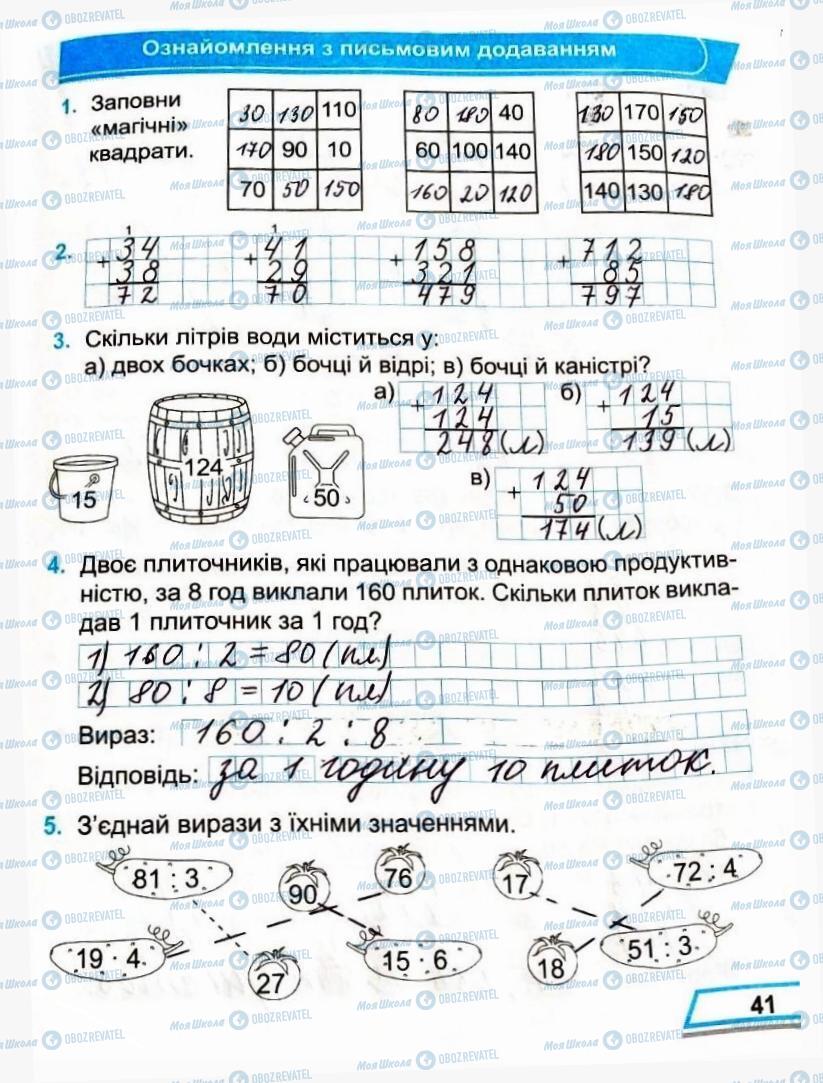 Ознайомлення з письмовим додаванням
1. Заповни «магічні» квадрати.
30 130 110
170 90 10
70 50 150
80 180 40
60 100 140
160 20 120
130 170 150
180 150 120
140 130 180
2.
1
+ 34
38
72
1
+ 41
29
70
+ 158
321
479
+ 712
85
797
3. Скільки літрів води міститься у:
а) двох бочках; б) бочці й відрі; в) бочці й каністрі?
15
124
50
а) + 124
124
248 (л)
б) + 124
15
139 (л)
в) + 124
50
174 (л)
4. Двоє плиточників, які працювали з однаковою продуктив-
ністю, за 8 год виклали 160 плиток. Скільки плиток викла-
дав 1 плиточник за 1 год?
1) 160 : 2 = 80 (пл)
2) 80 : 8 = 10 (пл)
Вираз: 160 : 2 : 8
Відповідь: за 1 годину 10 плиток.
5. З’єднай вирази з їхніми значеннями.
81 : 3 90 76 17 72 : 4
19 · 4 27 15 · 6 18 51 : 3
41
Моя Школа OBOZREVATEL